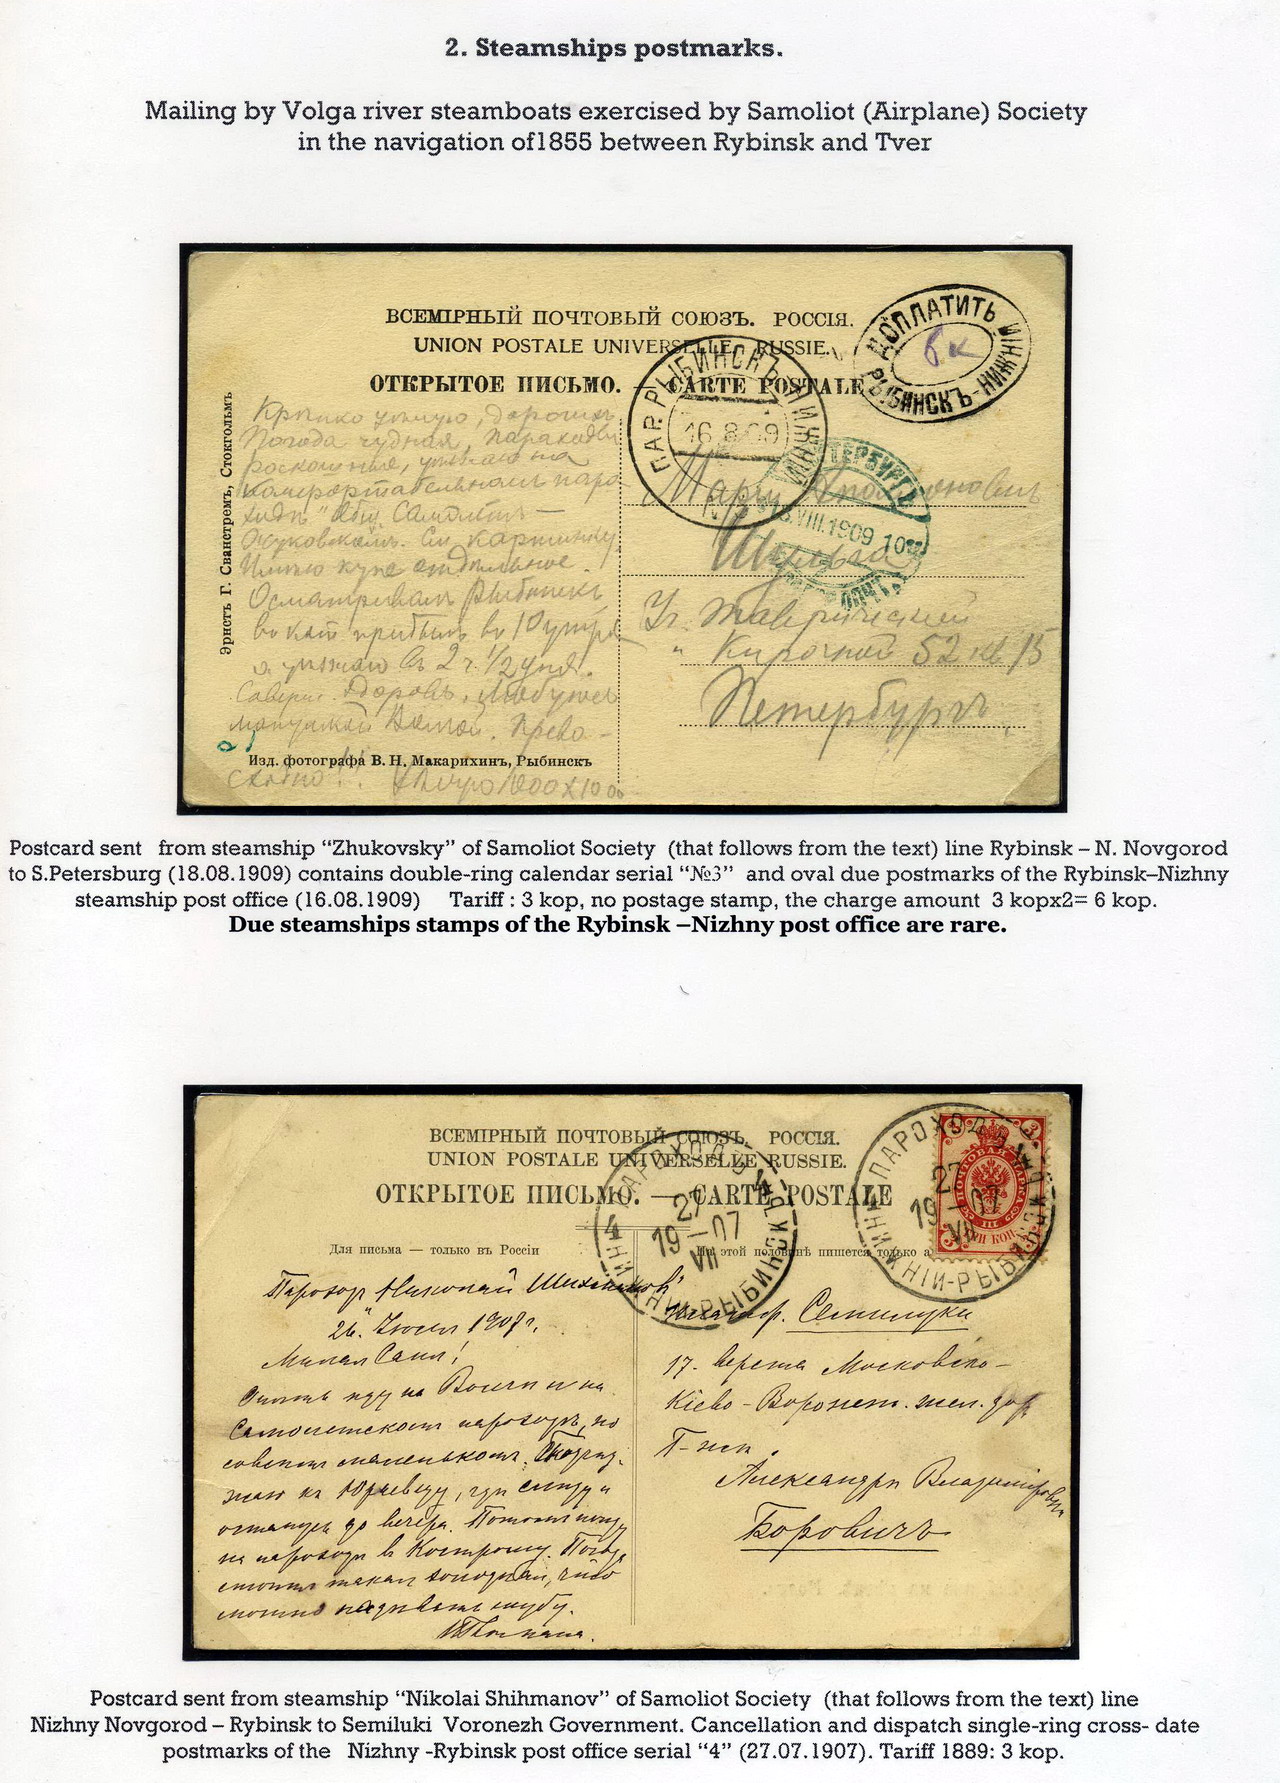 2. Steamships postmarks.
Mailing by Volga river steamboats exercised by Samoliot (Airplane) Society
in the navigation of1855 between Rybinsk and Tver
ВСЕМІРНЫЙ ПОЧТОВЫЙ СОЮЗЪ. РОССІЯ.
UNION POSTALE UNIVERSELLE. RUSSIE.
ОТКРЫТОЕ ПИСЬМО. — CARTE POSTALE
ДОПЛАТИТЬ
6 к
РЫБИНСКЪ-НИЖНІЙ
ПАР. РЫБИНСКЪ НИЖНІЙ
16 8 09
18.VIII.1909 10
Эрнстъ Г. Сванстремъ, Стокгольмъ
Крѣпко цѣлую, дорогая
Погода чудная, пароходы
роскошные, уѣзжаю на
Жуковскомъ. См картинку
Имѣю купе отдѣльное.
Осматривалъ Рыбинскъ
въ 2 ч. 1/2 дня.
Изд. фотографа В. Н. Макарихинъ, Рыбинскъ
1000 X 1000
Шульга
Уг. Таврической
" Кирочной 52 кв 15
Петербургъ
Postcard sent from steamship “Zhukovsky” of Samoliot Society (that follows from the text) line Rybinsk – N. Novgorod
to S.Petersburg (18.08.1909) contains double-ring calendar serial “№3” and oval due postmarks of the Rybinsk–Nizhny
steamship post office (16.08.1909) Tariff : 3 kop, no postage stamp, the charge amount 3 kopx2= 6 kop.
Due steamships stamps of the Rybinsk –Nizhny post office are rare.
ВСЕМІРНЫЙ ПОЧТОВЫЙ СОЮЗЪ. РОССІЯ.
UNION POSTALE UNIVERSELLE RUSSIE.
ОТКРЫТОЕ ПИСЬМО. — CARTE POSTALE
Для письма — только въ Россіи
На этой половинѣ пишется только а
ПАРОХОДЪ НИЖНІЙ-РЫБИНСКЪ 4
27 VII 1907
ПАРОХОДЪ НИЖНІЙ-РЫБИНСКЪ
27 VII 1907
ПОЧТОВАЯ МАРКА
Пароходъ Николай Шихмановъ"
26. Іюля 1907 г.
Милая Саня!
Опять иду на Волгѣ и на
Самолетскомъ пароходѣ, но
совсѣмъ маленькомъ. Подъѣз-
жаю къ Юрьевцу, гдѣ слѣзу и
останусь до вечера. Потомъ поѣду
на пароходѣ въ Кострому. Погода
стоитъ такая холодная, что
можно надѣвать шубу.
Семилуки
17. верста Московско-
Кіево-Воронеж. жел. дор
Г-жѣ.
Александрѣ Владиміровнѣ
Боровичъ
Postcard sent from steamship “Nikolai Shihmanov” of Samoliot Society (that follows from the text) line
Nizhny Novgorod – Rybinsk to Semiluki Voronezh Government. Cancellation and dispatch single-ring cross- date
postmarks of the Nizhny -Rybinsk post office serial “4” (27.07.1907). Tariff 1889: 3 kop.